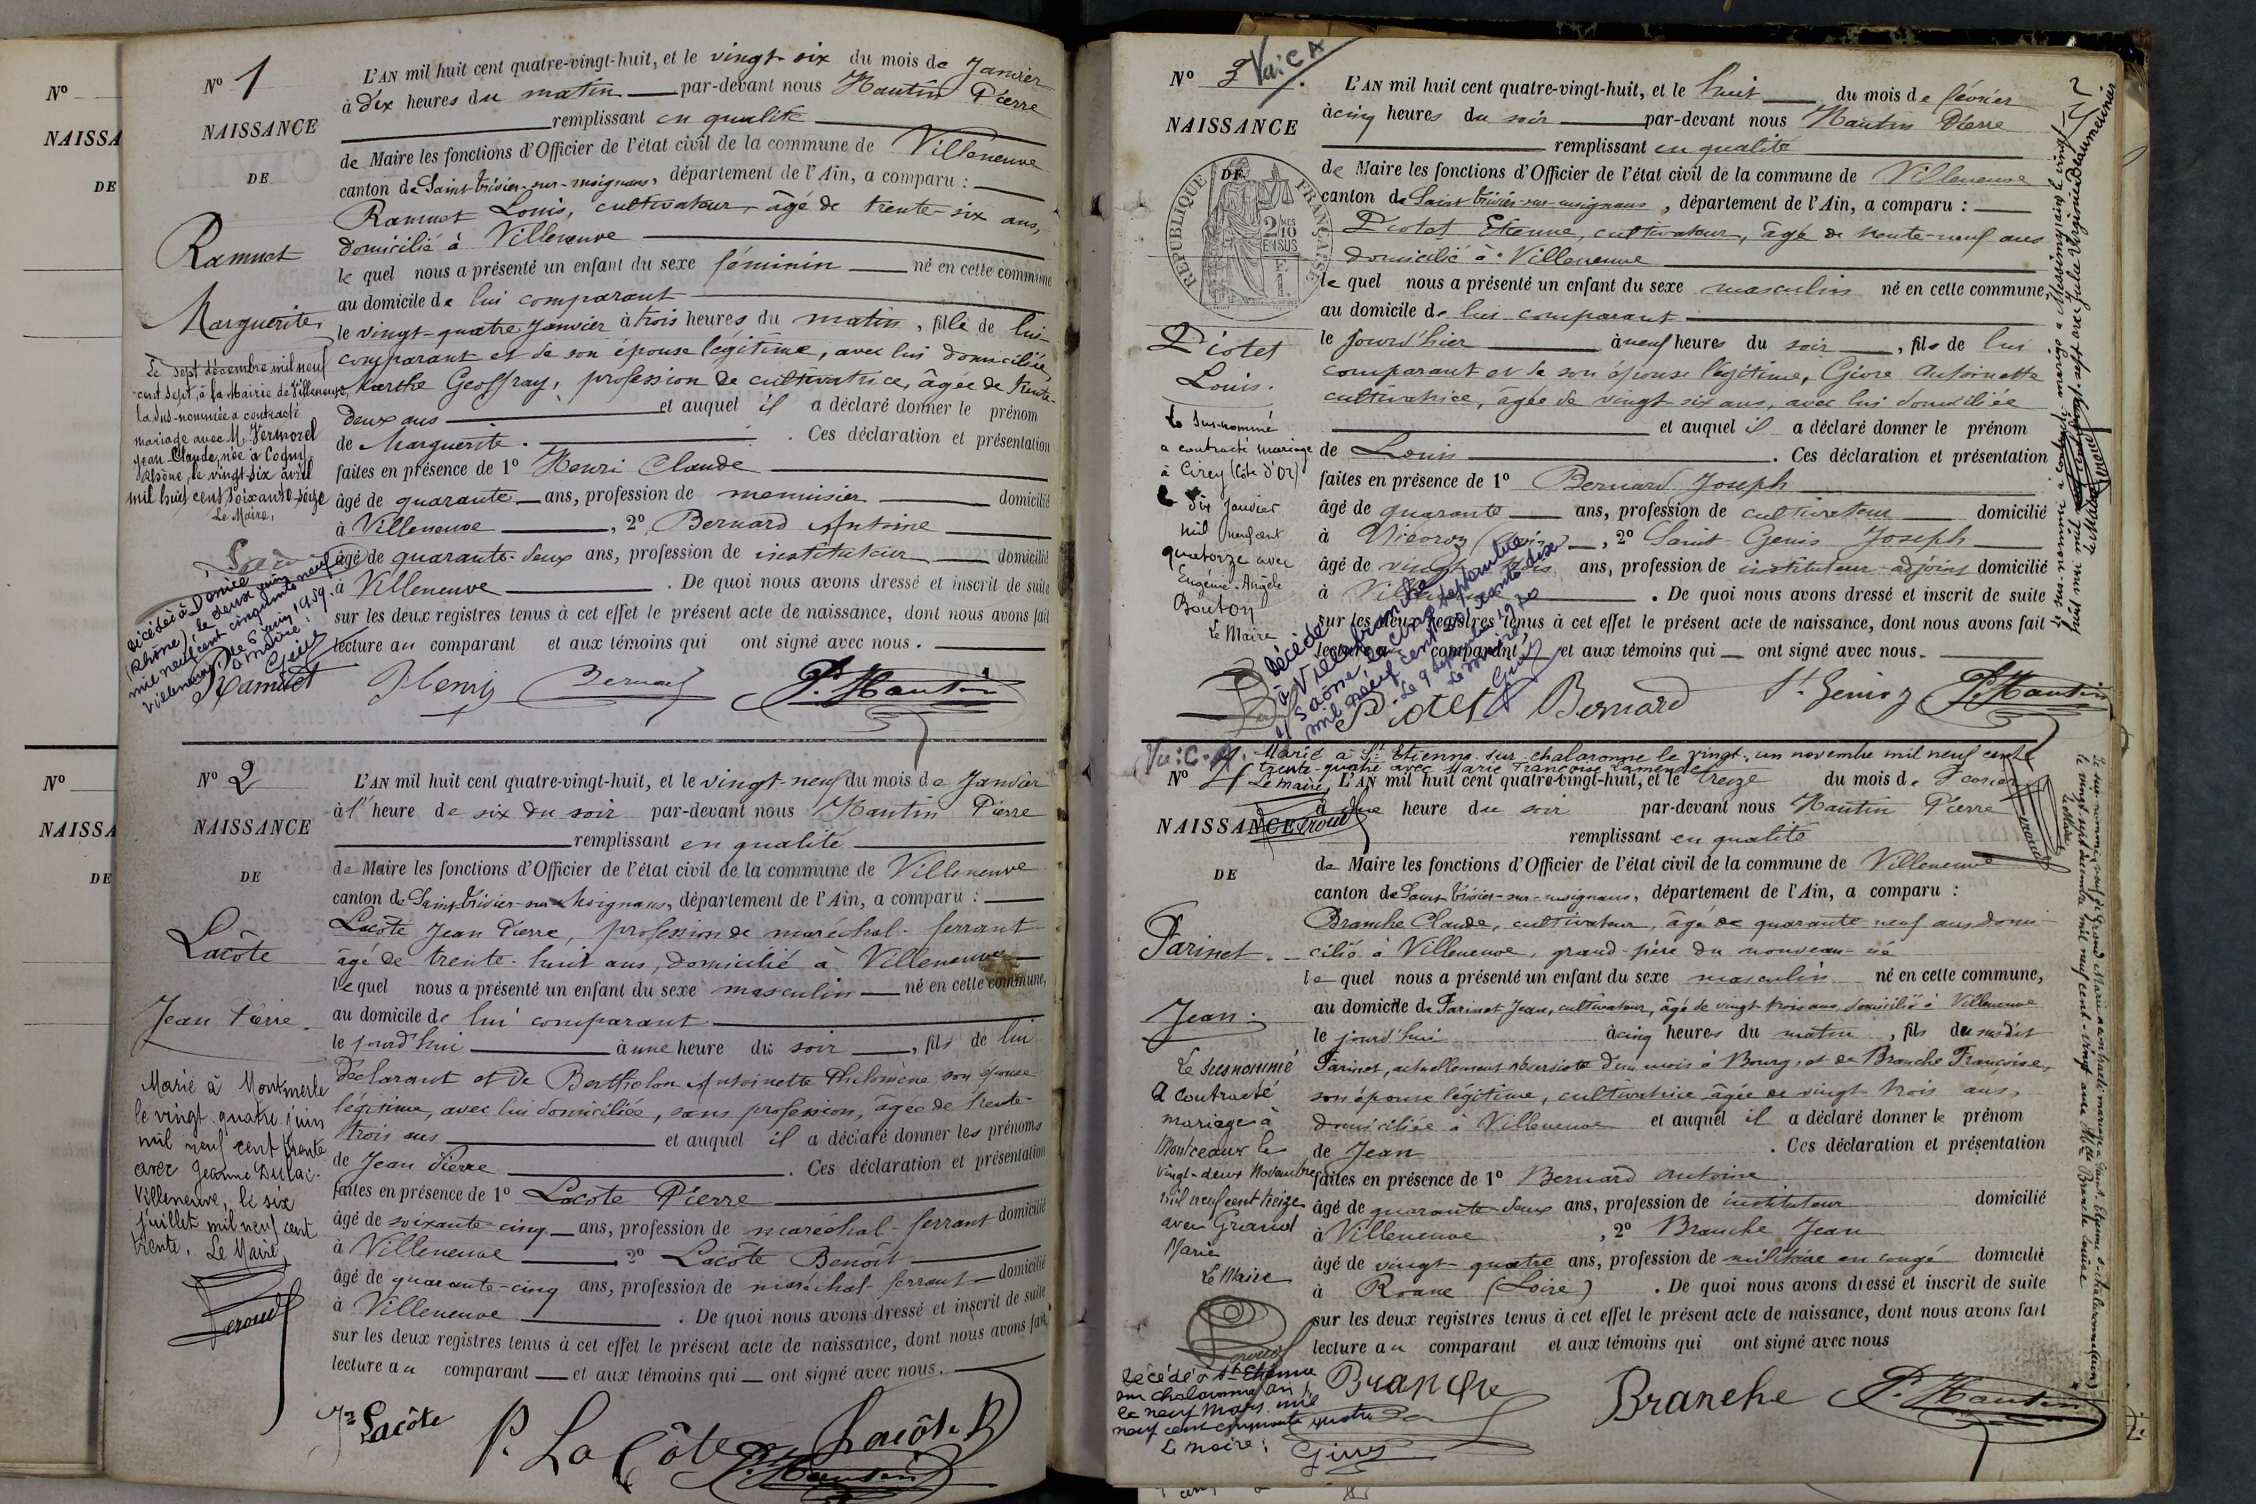 No
NAISSA
DE
No
NAISSA
DE
No 1
NAISSANCE
DE
Ramuet
Marguerite
Le sept décembre mil neuf
cent sept, à la Mairie de Villeneuve,
la sus-nommée a contracté
mariage avec M. Vermorel
Jean Claude, née à Cogny,
Rhône, le vingt-six avril
mil huit cent soixante-seize
Le Maire,
Décédée à Denice
(Rhône), le deux juin
mil neuf cent cinquante neuf
Villeneuve, le 6 juin 1959.
Le Maire :
L'AN mil huit cent quatre-vingt-huit, et le vingt-six du mois de Janvier
à dix heures du matin par-devant nous Hautin Pierre
remplissant en qualité
de Maire les fonctions d'Officier de l'état civil de la commune de Villeneuve
canton de Saint-Trivier-sur-Moignans, département de l'Ain, a comparu :
Ramuet Louis, cultivateur, âgé de trente-six ans,
domicilié à Villeneuve
le quel nous a présenté un enfant du sexe féminin né en cette commune
au domicile de lui comparant
le vingt-quatre Janvier à trois heures du matin, fille de lui
comparant et de son épouse légitime, avec lui domiciliée,
Marthe Geoffray, profession de cultivatrice, âgée de trente-
deux ans et auquel il a déclaré donner le prénom
de Marguerite. Ces déclaration et présentation
faites en présence de 1o Henri Claude
âgé de quarante ans, profession de menuisier domicilié
à Villeneuve, 2o Bernard Antoine
âgé de quarante-deux ans, profession de instituteur domicilié
à Villeneuve. De quoi nous avons dressé et inscrit de suite
sur les deux registres tenus à cet effet le présent acte de naissance, dont nous avons fait
lecture au comparant et aux témoins qui ont signé avec nous.
Ramuet Henry Bernard P. Hautin
No 2
NAISSANCE
DE
Lacôte
Jean Pierre
Marié à Montmerle
le vingt-quatre juin
mil neuf cent trente
avec Jeanne Dulac.
Villeneuve, le six
juillet mil neuf cent
trente. Le Maire
L'AN mil huit cent quatre-vingt-huit, et le vingt-neuf du mois de Janvier
à l'heure de six du soir par-devant nous Hautin Pierre
remplissant en qualité
de Maire les fonctions d'Officier de l'état civil de la commune de Villeneuve
canton de Saint-Trivier-sur-Moignans, département de l'Ain, a comparu :
Lacôte Jean Pierre, profession de maréchal-ferrant
âgé de trente-huit ans, domicilié à Villeneuve
le quel nous a présenté un enfant du sexe masculin né en cette commune,
au domicile de lui comparant
le jourd'hui à une heure du soir, fils de lui
déclarant et de Bertholon Antoinette Philomène son épouse
légitime, avec lui domiciliée, sans profession, âgée de trente-
trois ans et auquel il a déclaré donner les prénoms
de Jean Pierre. Ces déclaration et présentation
faites en présence de 1o Lacôte Pierre
âgé de soixante-cinq ans, profession de maréchal-ferrant domicilié
à Villeneuve 2o Lacôte Benoît
âgé de quarante-cinq ans, profession de maréchal-ferrant domicilié
à Villeneuve. De quoi nous avons dressé et inscrit de suite
sur les deux registres tenus à cet effet le présent acte de naissance, dont nous avons fait
lecture au comparant et aux témoins qui ont signé avec nous.
Lacôte P. LaCôte Lacôte B
P. Hautin
No 3 Vu: C A
NAISSANCE
DE
RÉPUBLIQUE FRANÇAISE
Piotet
Louis.
Le sus-nommé
a contracté mariage
à Cirey (Côte d'Or)
le six Janvier
mil neuf cent
quatorze avec
Eugénie Angèle
Bouton
Le Maire
Décédé
à Villefranche
s/ Saône le cinq septembre
mil neuf cent soixante dix
Le 9 septembre 1970
Le maire,
L'AN mil huit cent quatre-vingt-huit, et le huit du mois de février
à cinq heures du soir par-devant nous Hautin Pierre
remplissant en qualité
de Maire les fonctions d'Officier de l'état civil de la commune de Villeneuve
canton de Saint Trivier-sur-moignans, département de l'Ain, a comparu :
Piotet Etienne, cultivateur, âgé de trente-neuf ans
domicilié à Villeneuve
le quel nous a présenté un enfant du sexe masculin né en cette commune,
au domicile de lui comparant
le jourd'hier à neuf heures du soir, fils de lui
comparant et de son épouse légitime, Givre Antoinette
cultivatrice, âgée de vingt six ans, avec lui domiciliée
et auquel il a déclaré donner le prénom
de Louis. Ces déclaration et présentation
faites en présence de 1o Bernard Joseph
âgé de quarante ans, profession de cultivateur domicilié
à , 2o Saint-Genis Joseph
âgé de vingt-trois ans, profession de instituteur-adjoint domicilié
à Villeneuve. De quoi nous avons dressé et inscrit de suite
sur les deux registres tenus à cet effet le présent acte de naissance, dont nous avons fait
lecture au comparant et aux témoins qui ont signé avec nous.
Piotet Bernard St Genis J P. Hautin
Vu: C. A. Marié à St Etienne sur chalaronne le vingt-un novembre mil neuf cent
trente quatre avec Marie Françoise
Le maire
No 4
NAISSANCE
DE
Farinet
Jean.
Le susnommé
a contracté
mariage à
Montceaux le
vingt-deux Novembre
mil neuf cent treize
avec Grand
Marie
Le Maire
Décédé à St Etienne
sur chalaronne (Ain),
le neuf Mars mil
neuf cent cinquante quatre
Le maire :
L'AN mil huit cent quatre-vingt-huit, et le treize du mois de Février
à une heure du soir par-devant nous Hautin Pierre
remplissant en qualité
de Maire les fonctions d'Officier de l'état civil de la commune de Villeneuve
canton de Saint-Trivier-sur-moignans, département de l'Ain, a comparu :
Branche Claude, cultivateur, âgé de quarante-neuf ans, domi-
cilié à Villeneuve, grand-père du nouveau-né
le quel nous a présenté un enfant du sexe masculin né en cette commune,
au domicile de Farinet Jean, cultivateur, âgé de vingt-trois ans, domicilié à Villeneuve
le jourd'hui à cinq heures du matin, fils du susdit
Farinet, actuellement réserviste d'un mois à Bourg, et de Branche Françoise,
son épouse légitime, cultivatrice âgée de vingt-trois ans,
domiciliée à Villeneuve et auquel il a déclaré donner le prénom
de Jean. Ces déclaration et présentation
faites en présence de 1o Bernard Antoine
âgé de quarante-deux ans, profession de instituteur domicilié
à Villeneuve, 2o Branche Jean
âgé de vingt-quatre ans, profession de militaire en congé domicilié
à Roane (Loire). De quoi nous avons dressé et inscrit de suite
sur les deux registres tenus à cet effet le présent acte de naissance, dont nous avons fait
lecture au comparant et aux témoins qui ont signé avec nous
Branche Branche P. Hautin